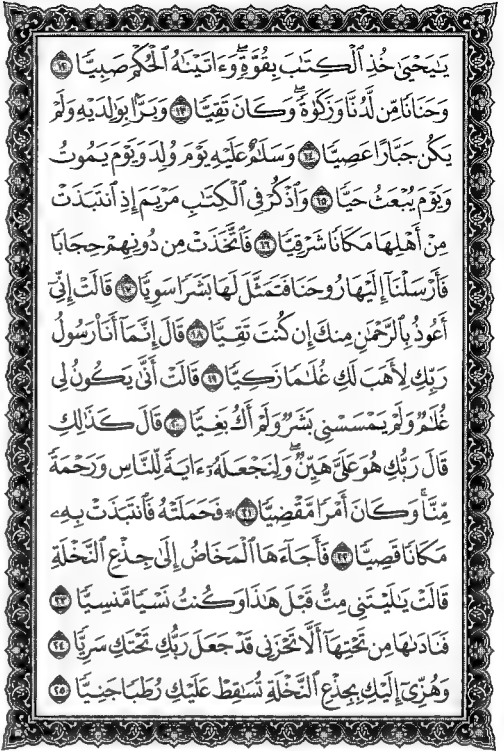 يَٰيَحْيَىٰ خُذِ ٱلْكِتَٰبَ بِقُوَّةٍۖ وَءَاتَيْنَٰهُ ٱلْحُكْمَ صَبِيًّا ١٢
وَحَنَانًا مِّن لَّدُنَّا وَزَكَوٰةًۖ وَكَانَ تَقِيًّا ١٣ وَبَرًّۢا بِوَٰلِدَيْهِ وَلَمْ
يَكُن جَبَّارًا عَصِيًّا ١٤ وَسَلَٰمٌ عَلَيْهِ يَوْمَ وُلِدَ وَيَوْمَ يَمُوتُ
وَيَوْمَ يُبْعَثُ حَيًّا ١٥ وَٱذْكُرْ فِي ٱلْكِتَٰبِ مَرْيَمَ إِذِ ٱنتَبَذَتْ
مِنْ أَهْلِهَا مَكَانًا شَرْقِيًّا ١٦ فَٱتَّخَذَتْ مِن دُونِهِمْ حِجَابًا
فَأَرْسَلْنَآ إِلَيْهَا رُوحَنَا فَتَمَثَّلَ لَهَا بَشَرًا سَوِيًّا ١٧ قَالَتْ إِنِّيٓ
أَعُوذُ بِٱلرَّحْمَٰنِ مِنكَ إِن كُنتَ تَقِيًّا ١٨ قَالَ إِنَّمَآ أَنَا۠ رَسُولُ
رَبِّكِ لِأَهَبَ لَكِ غُلَٰمًا زَكِيًّا ١٩ قَالَتْ أَنَّىٰ يَكُونُ لِي
غُلَٰمٌ وَلَمْ يَمْسَسْنِي بَشَرٌ وَلَمْ أَكُ بَغِيًّا ٢٠ قَالَ كَذَٰلِكِ
قَالَ رَبُّكِ هُوَ عَلَيَّ هَيِّنٌۖ وَلِنَجْعَلَهُۥٓ ءَايَةً لِّلنَّاسِ وَرَحْمَةً
مِّنَّاۚ وَكَانَ أَمْرًا مَّقْضِيًّا ٢١ ۞ فَحَمَلَتْهُ فَٱنتَبَذَتْ بِهِۦ
مَكَانًا قَصِيًّا ٢٢ فَأَجَآءَهَا ٱلْمَخَاضُ إِلَىٰ جِذْعِ ٱلنَّخْلَةِ
قَالَتْ يَٰلَيْتَنِي مِتُّ قَبْلَ هَٰذَا وَكُنتُ نَسْيًا مَّنسِيًّا ٢٣
فَنَادَىٰهَا مِن تَحْتِهَآ أَلَّا تَحْزَنِي قَدْ جَعَلَ رَبُّكِ تَحْتَكِ سَرِيًّا ٢٤
وَهُزِّيٓ إِلَيْكِ بِجِذْعِ ٱلنَّخْلَةِ تُسَٰقِطْ عَلَيْكِ رُطَبًا جَنِيًّا ٢٥